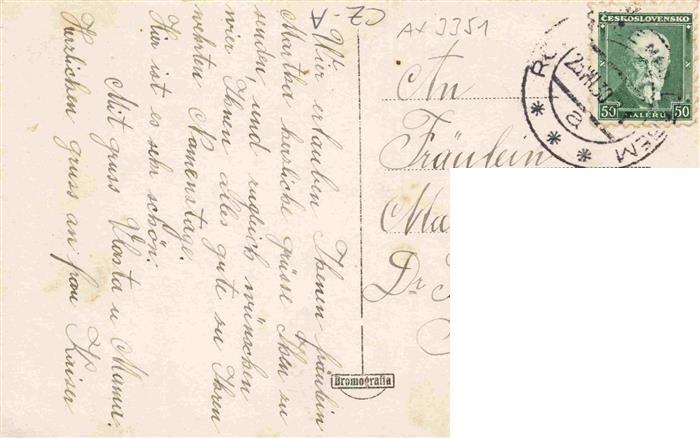 CZ-
AX 3351
Wir erlauben Ihnen fräulein
Martha herzliche grüsse Ihen zu
senden, und zugleich wünschen
wir Ihnen alles gute zu Ihren
wehrten Namenstage.
Hir ist es sehr schön.
Mit gruss Vlasta u Mama.
Herzlichen gruss an frau Kaiser
An
Fräulein
Ma
Dr
Bromografia
ČESKOSLOVENSKO
50 HALÉŘŮ 50